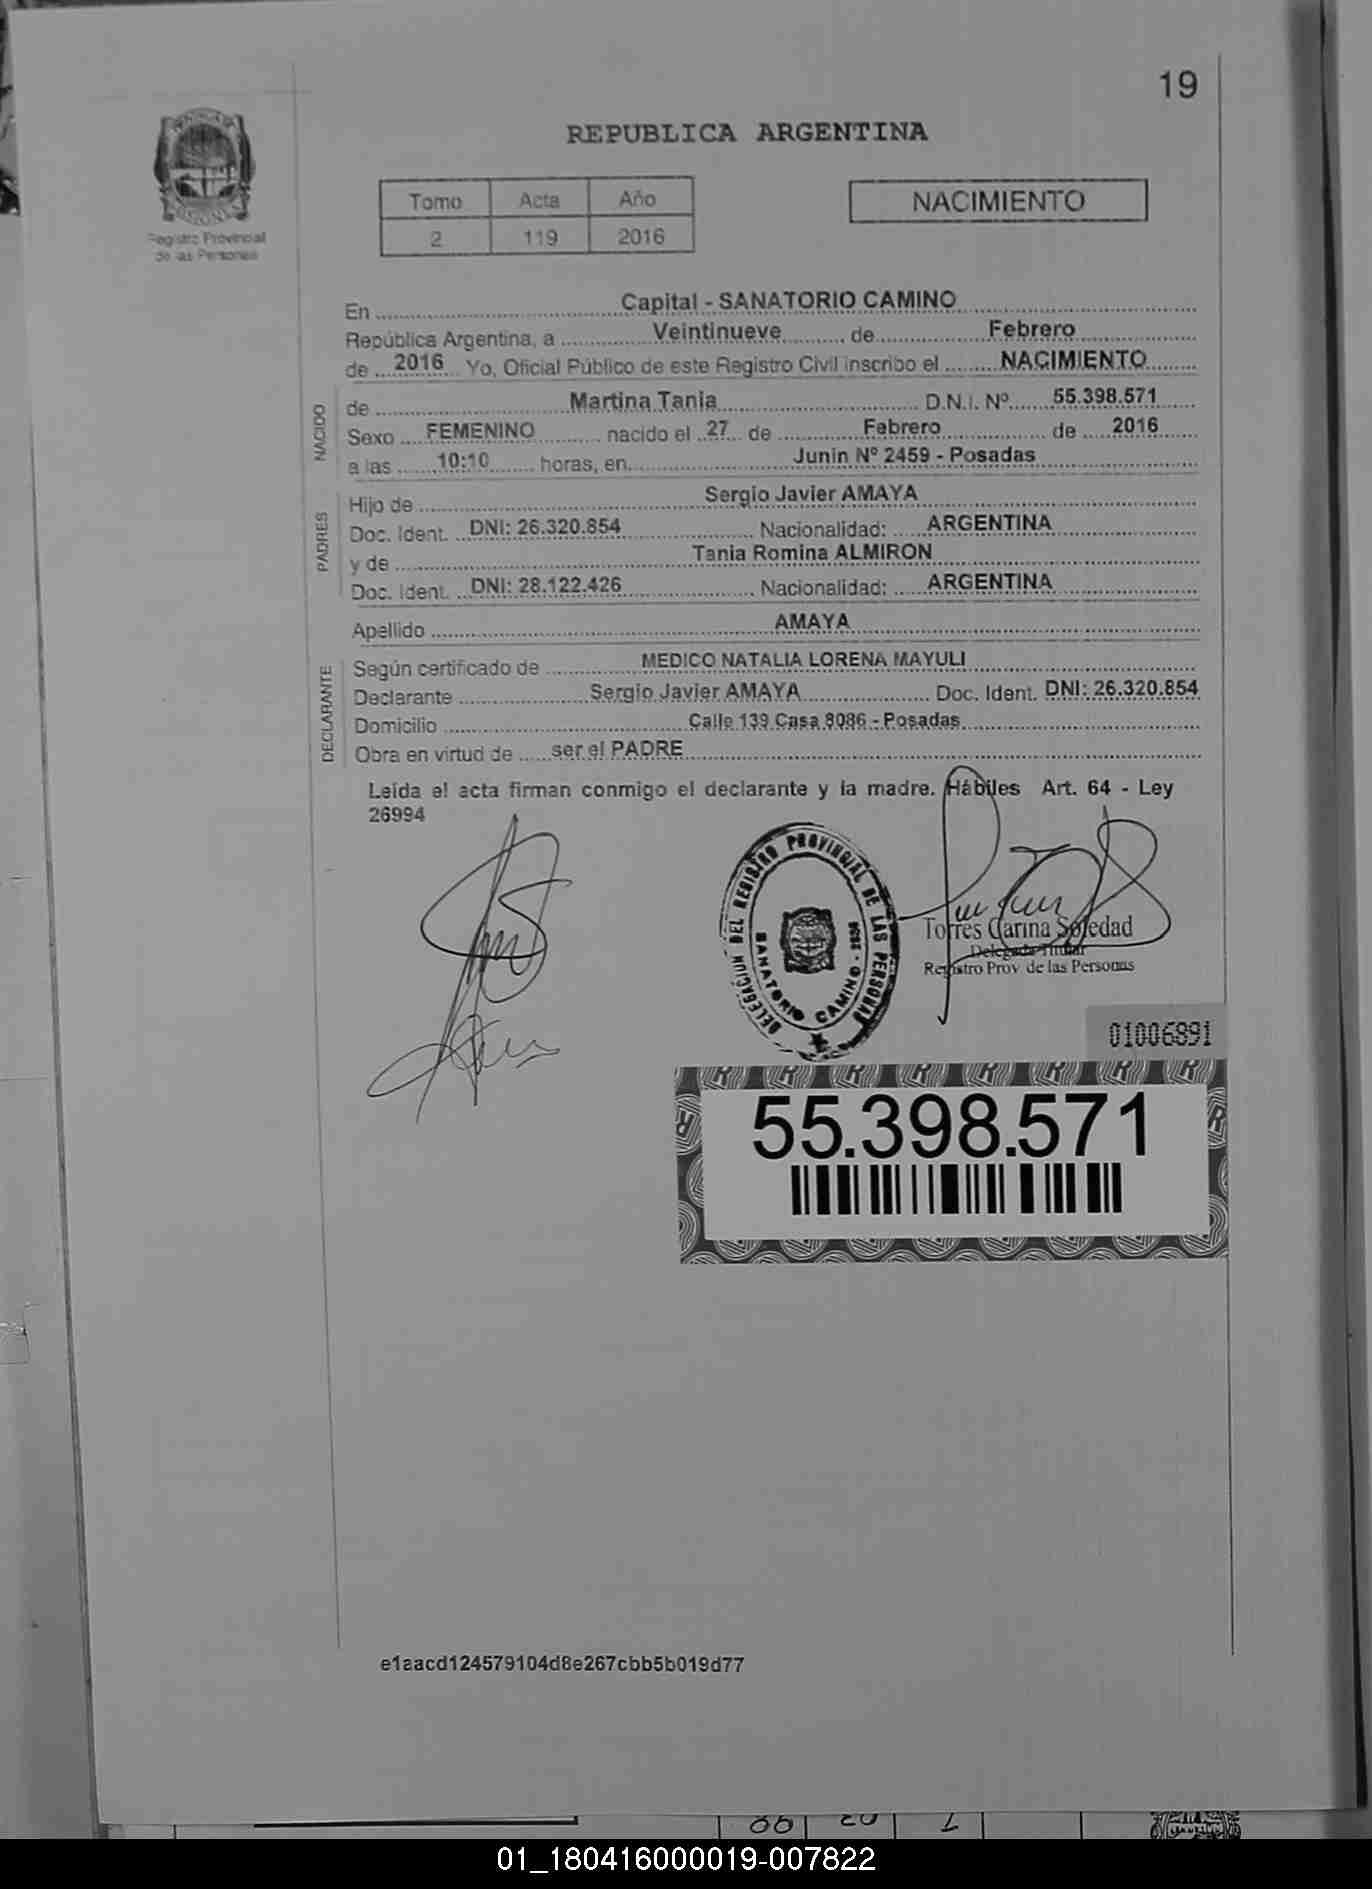 19
REPUBLICA ARGENTINA
Registro Provincial
de las Personas
Tomo Acta Año
2 119 2016
NACIMIENTO
En Capital - SANATORIO CAMINO
República Argentina, a Veintinueve de Febrero
de 2016 Yo, Oficial Público de este Registro Civil inscribo el NACIMIENTO
NACIDO
de Martina Tania D.N.I. Nº 55.398.571
Sexo FEMENINO nacido el 27 de Febrero de 2016
a las 10:10 horas, en Junin Nº 2459 - Posadas
PADRES
Hijo de Sergio Javier AMAYA
Doc. Ident. DNI: 26.320.854 Nacionalidad: ARGENTINA
y de Tania Romina ALMIRON
Doc. Ident. DNI: 28.122.426 Nacionalidad: ARGENTINA
Apellido AMAYA
DECLARANTE
Según certificado de MEDICO NATALIA LORENA MAYULI
Declarante Sergio Javier AMAYA Doc. Ident. DNI: 26.320.854
Domicilio Calle 139 Casa 8086 - Posadas
Obra en virtud de ser el PADRE
Leída el acta firman conmigo el declarante y la madre. Hábiles Art. 64 - Ley
26994
DELEGACION DEL REGISTRO PROVINCIAL DE LAS PERSONAS
SANATORIO CAMINO
Torres Carina Soledad
Delegada Titular
Registro Prov. de las Personas
01006891
55.398.571
e1aacd124579104d8e267cbb5b019d77
01_180416000019-007822